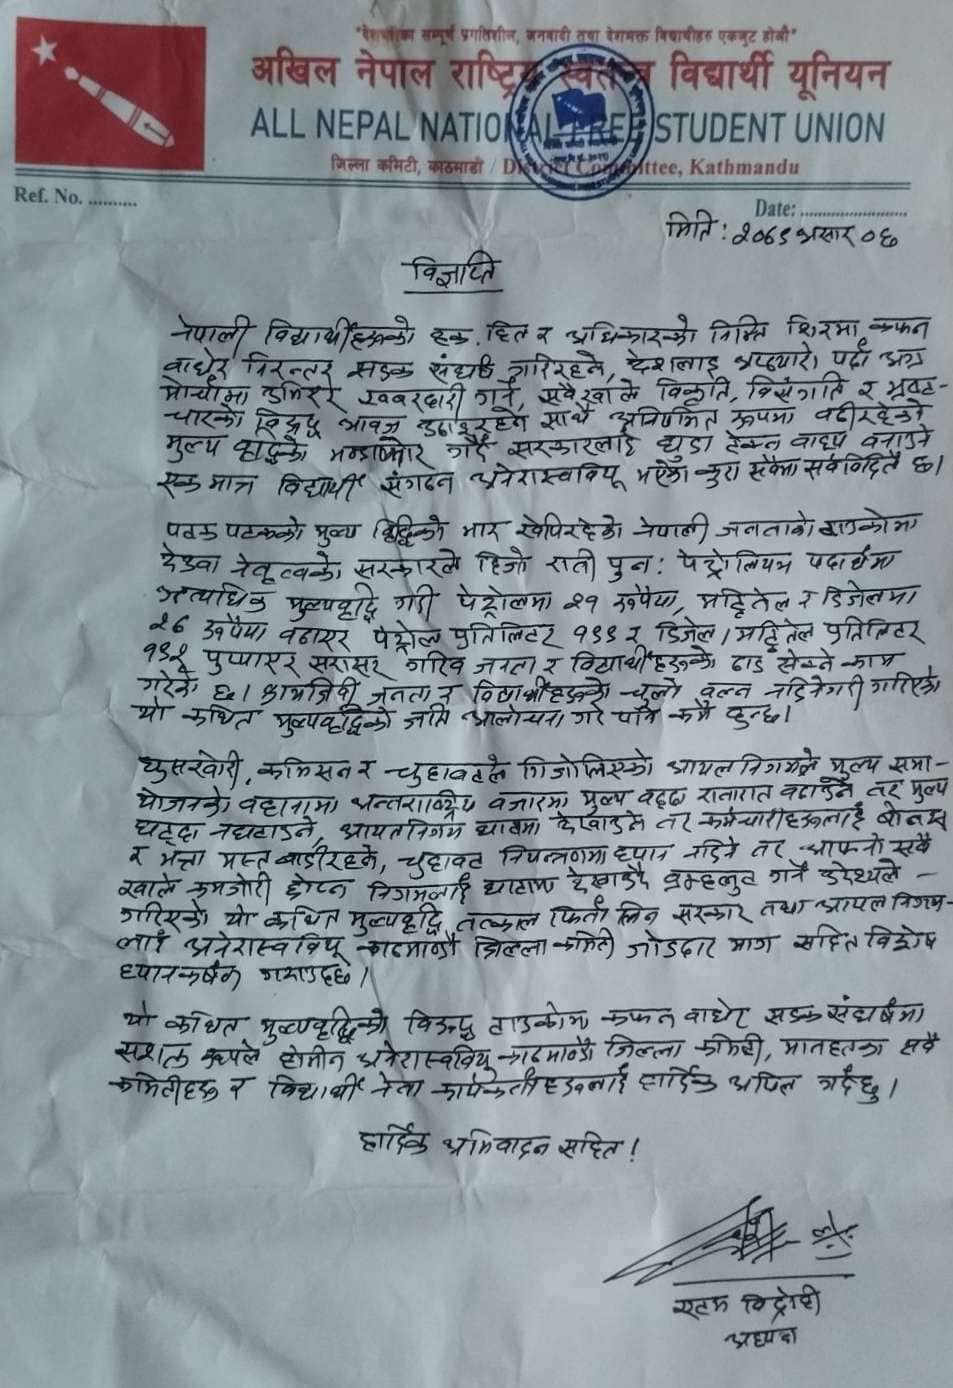 "देशभरका सम्पूर्ण प्रगतिशील, जनवादी तथा देशभक्त विद्यार्थीहरु एकजुट होऔं"
अखिल नेपाल राष्ट्रिय स्वतन्त्र विद्यार्थी यूनियन
ALL NEPAL NATIONAL FREE STUDENT UNION
जिल्ला कमिटी, काठमाडौं / District Committee, Kathmandu
Ref. No. ..........
Date: ........................
मिति : २०७९ असार ०६
विज्ञप्ति
नेपाली विद्यार्थीहरुको हक, हित र अधिकारको निम्ति शिरमा कफन
वाधेर निरन्तर सडक संघर्ष गरिरहने, देशलाइ अप्ठ्यारो पर्दा अग्र
मोर्चामा उभिएर खवरदारी गर्ने, सवै खाले विकृति, विसंगति र भ्रष्टा-
चारको विरुद्ध आवाज उठाइरहने साथै अनियमित रूपमा वढीरहेको
मुल्य वृद्धिको भण्डाफोर गर्दै सरकारलाई घुडा टेक्न वाध्य वनाउने
एक मात्र विद्यार्थी संगठन अनेरास्ववियू भएको कुरा सवैमा सर्वविदितै छ।
पटक पटकको मुल्य वृद्धिको भार खेपिरहेको नेपाली जनताको टाउकोमा
देउवा नेतृत्वको सरकारले हिजो राती पुन: पेट्रोलियम पदार्थमा
अत्याधिक मुल्यवृद्धि गरी पेट्रोलमा २१ रूपैया, मट्टितेल र डिजेलमा
२७ रूपैया वढाएर पेट्रोल प्रतिलिटर १९९ र डिजेल/मट्टितेल प्रतिलिटर
१९२ पुर्‍याएर सरासर गरिव जनता र विद्यार्थीहरुको ढाड सेक्ने काम
गरेको छ। श्रमजिवी जनता र विद्यार्थीहरुको चुलो वल्न नदिनेगरी गरिएको
यो कथित मुल्यवृद्धिको जति आलोचना गरे पनि कमै हुन्छ।
घुसखोरी, कमिसन र चुहावटले गिजोलिएको आयल निगमले मुल्य समा-
योजनको वहानामा अन्तराष्ट्रिय वजारमा मुल्य वढ्दा रातारात वढाउने तर मुल्य
घट्दा नघटाउने, आयल निगम घाटामा देखाउने तर कर्मचारीहरुलाई बोनस
र भत्ता भने वाडीरहने, चुहावट नियन्त्रणमा ध्यान नदिने तर आफ्नो सवै
खाले कमजोरी छोप्न निगमलाई घाटामा देखाउदै ब्रम्हलुट गर्ने उदेश्यले
गरिएको यो कथित मुल्यवृद्धि तत्काल फिर्ता लिन सरकार तथा आयल निगम-
लाई अनेरास्ववियू काठमाण्डौ जिल्ला कमिटी जोडदार माग सहित विशेष
ध्यानकर्षण गराउदछ।
यो कथित मुल्यवृद्धिको विरुद्ध टाउकोमा कफन वाधेर सडक संघर्षमा
सशक्त रूपले होमीन अनेरास्ववियू काठमाण्डौ जिल्ला कमिटी, मातहतका सवै
कमिटीहरु र विद्यार्थी नेता कार्यकर्ताहरुलाई हार्दिक अपिल गर्दछु।
हार्दिक अभिवादन सहित!
विद्रोही
अध्यक्ष